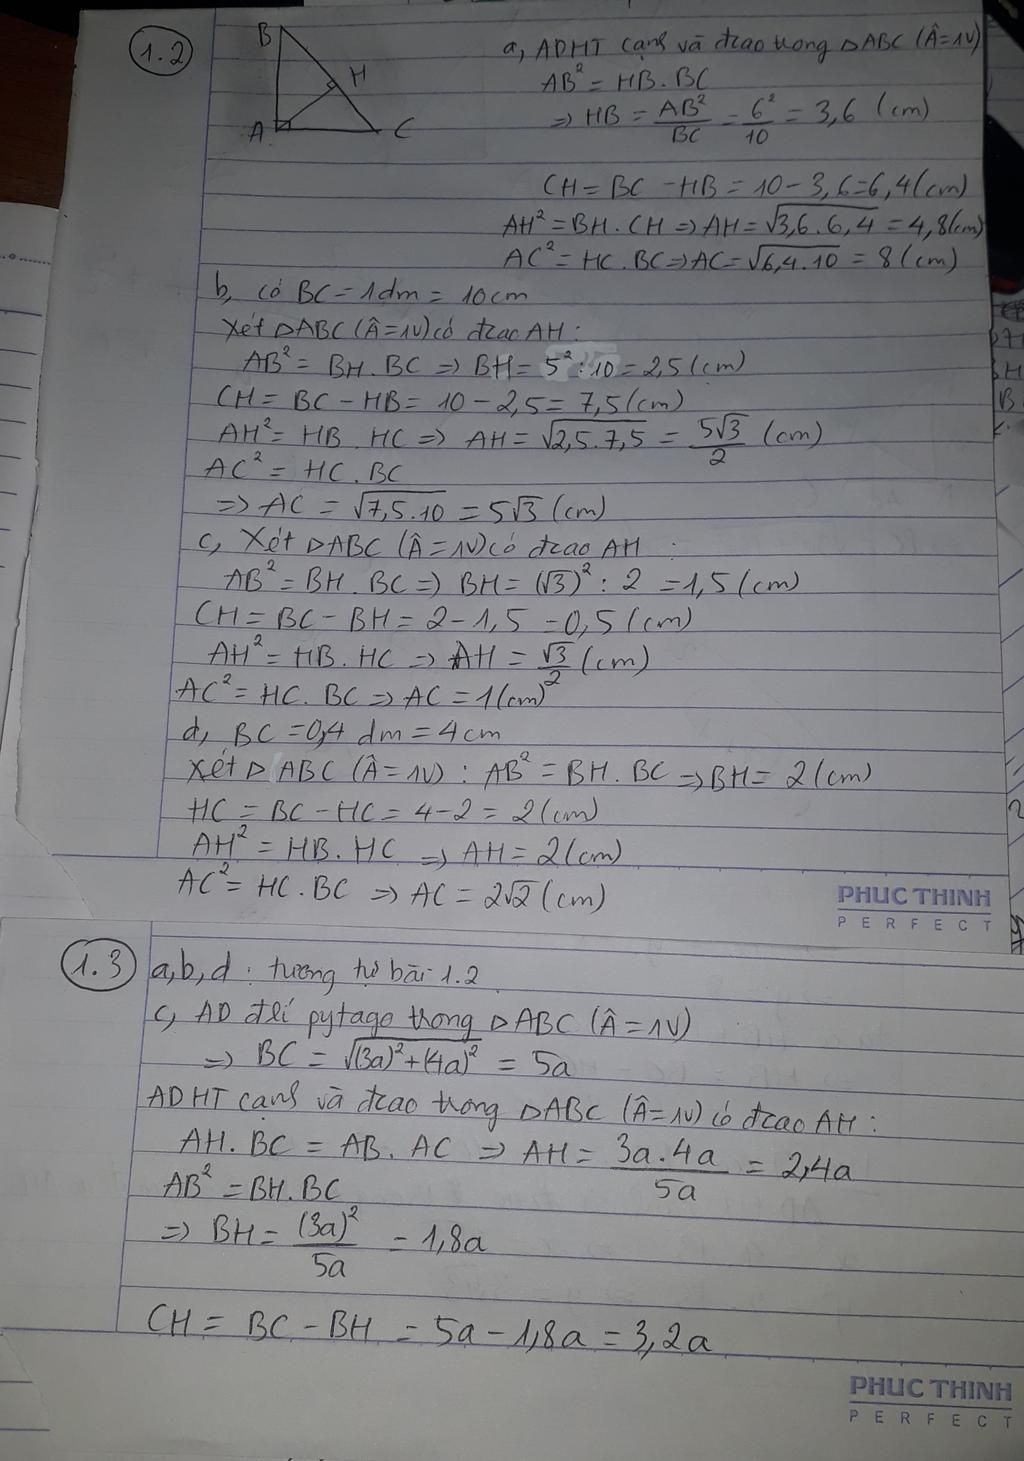 1.2
B
H
A
C
a, ADHT cạnh và đcao trong ΔABC (Â=1V)
AB² = HB.BC
=> HB = AB²/BC = 6²/10 = 3,6 (cm)
CH = BC - HB = 10 - 3,6 = 6,4 (cm)
AH² = BH.CH => AH = √3,6.6,4 = 4,8 (cm)
AC² = HC.BC => AC = √6,4.10 = 8 (cm)
b, có BC = 1dm = 10cm
Xét ΔABC (Â=1V) có đcao AH:
AB² = BH.BC => BH = 5² : 10 = 2,5 (cm)
CH = BC - HB = 10 - 2,5 = 7,5 (cm)
AH² = HB.HC => AH = √2,5.7,5 = 5√3/2 (cm)
AC² = HC.BC
=> AC = √7,5.10 = 5√3 (cm)
c, Xét ΔABC (Â=1V) có đcao AH:
AB² = BH.BC => BH = (√3)² : 2 = 1,5 (cm)
CH = BC - BH = 2 - 1,5 = 0,5 (cm)
AH² = HB.HC => AH = √3/2 (cm)
AC² = HC.BC => AC = 1 (cm)
d, BC = 0,4 dm = 4cm
Xét ΔABC (Â=1V) : AB² = BH.BC => BH = 2 (cm)
HC = BC - HC = 4 - 2 = 2 (cm)
AH² = HB.HC => AH = 2 (cm)
AC² = HC.BC => AC = 2√2 (cm)
PHUC THINH
PERFECT
1.3
a,b,d : tương tự bài 1.2
c, AD đlí pytago trong ΔABC (Â=1V)
=> BC = √(3a)²+(4a)² = 5a
ADHT cạnh và đcao trong ΔABC (Â=1V) có đcao AH:
AH.BC = AB.AC => AH = 3a.4a/5a = 2,4a
AB² = BH.BC
=> BH = (3a)²/5a = 1,8a
CH = BC - BH = 5a - 1,8a = 3,2a
PHUC THINH
PERFECT